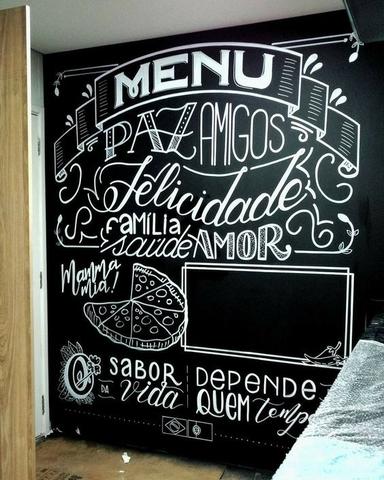 MENU
PAZ AMIGOS
Felicidade
FAMÍLIA
saúde AMOR
Mamma
mia!
O SABOR
DA vida
DEPENDE
QUEM tempera